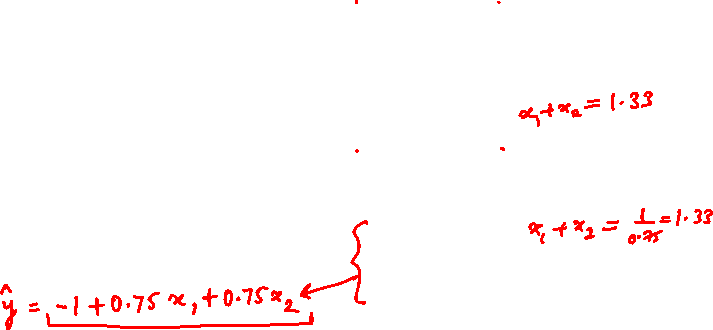 x₁+x₂=1.33
x₁+x₂=1/0.75=1.33
ŷ=-1+0.75x₁+0.75x₂